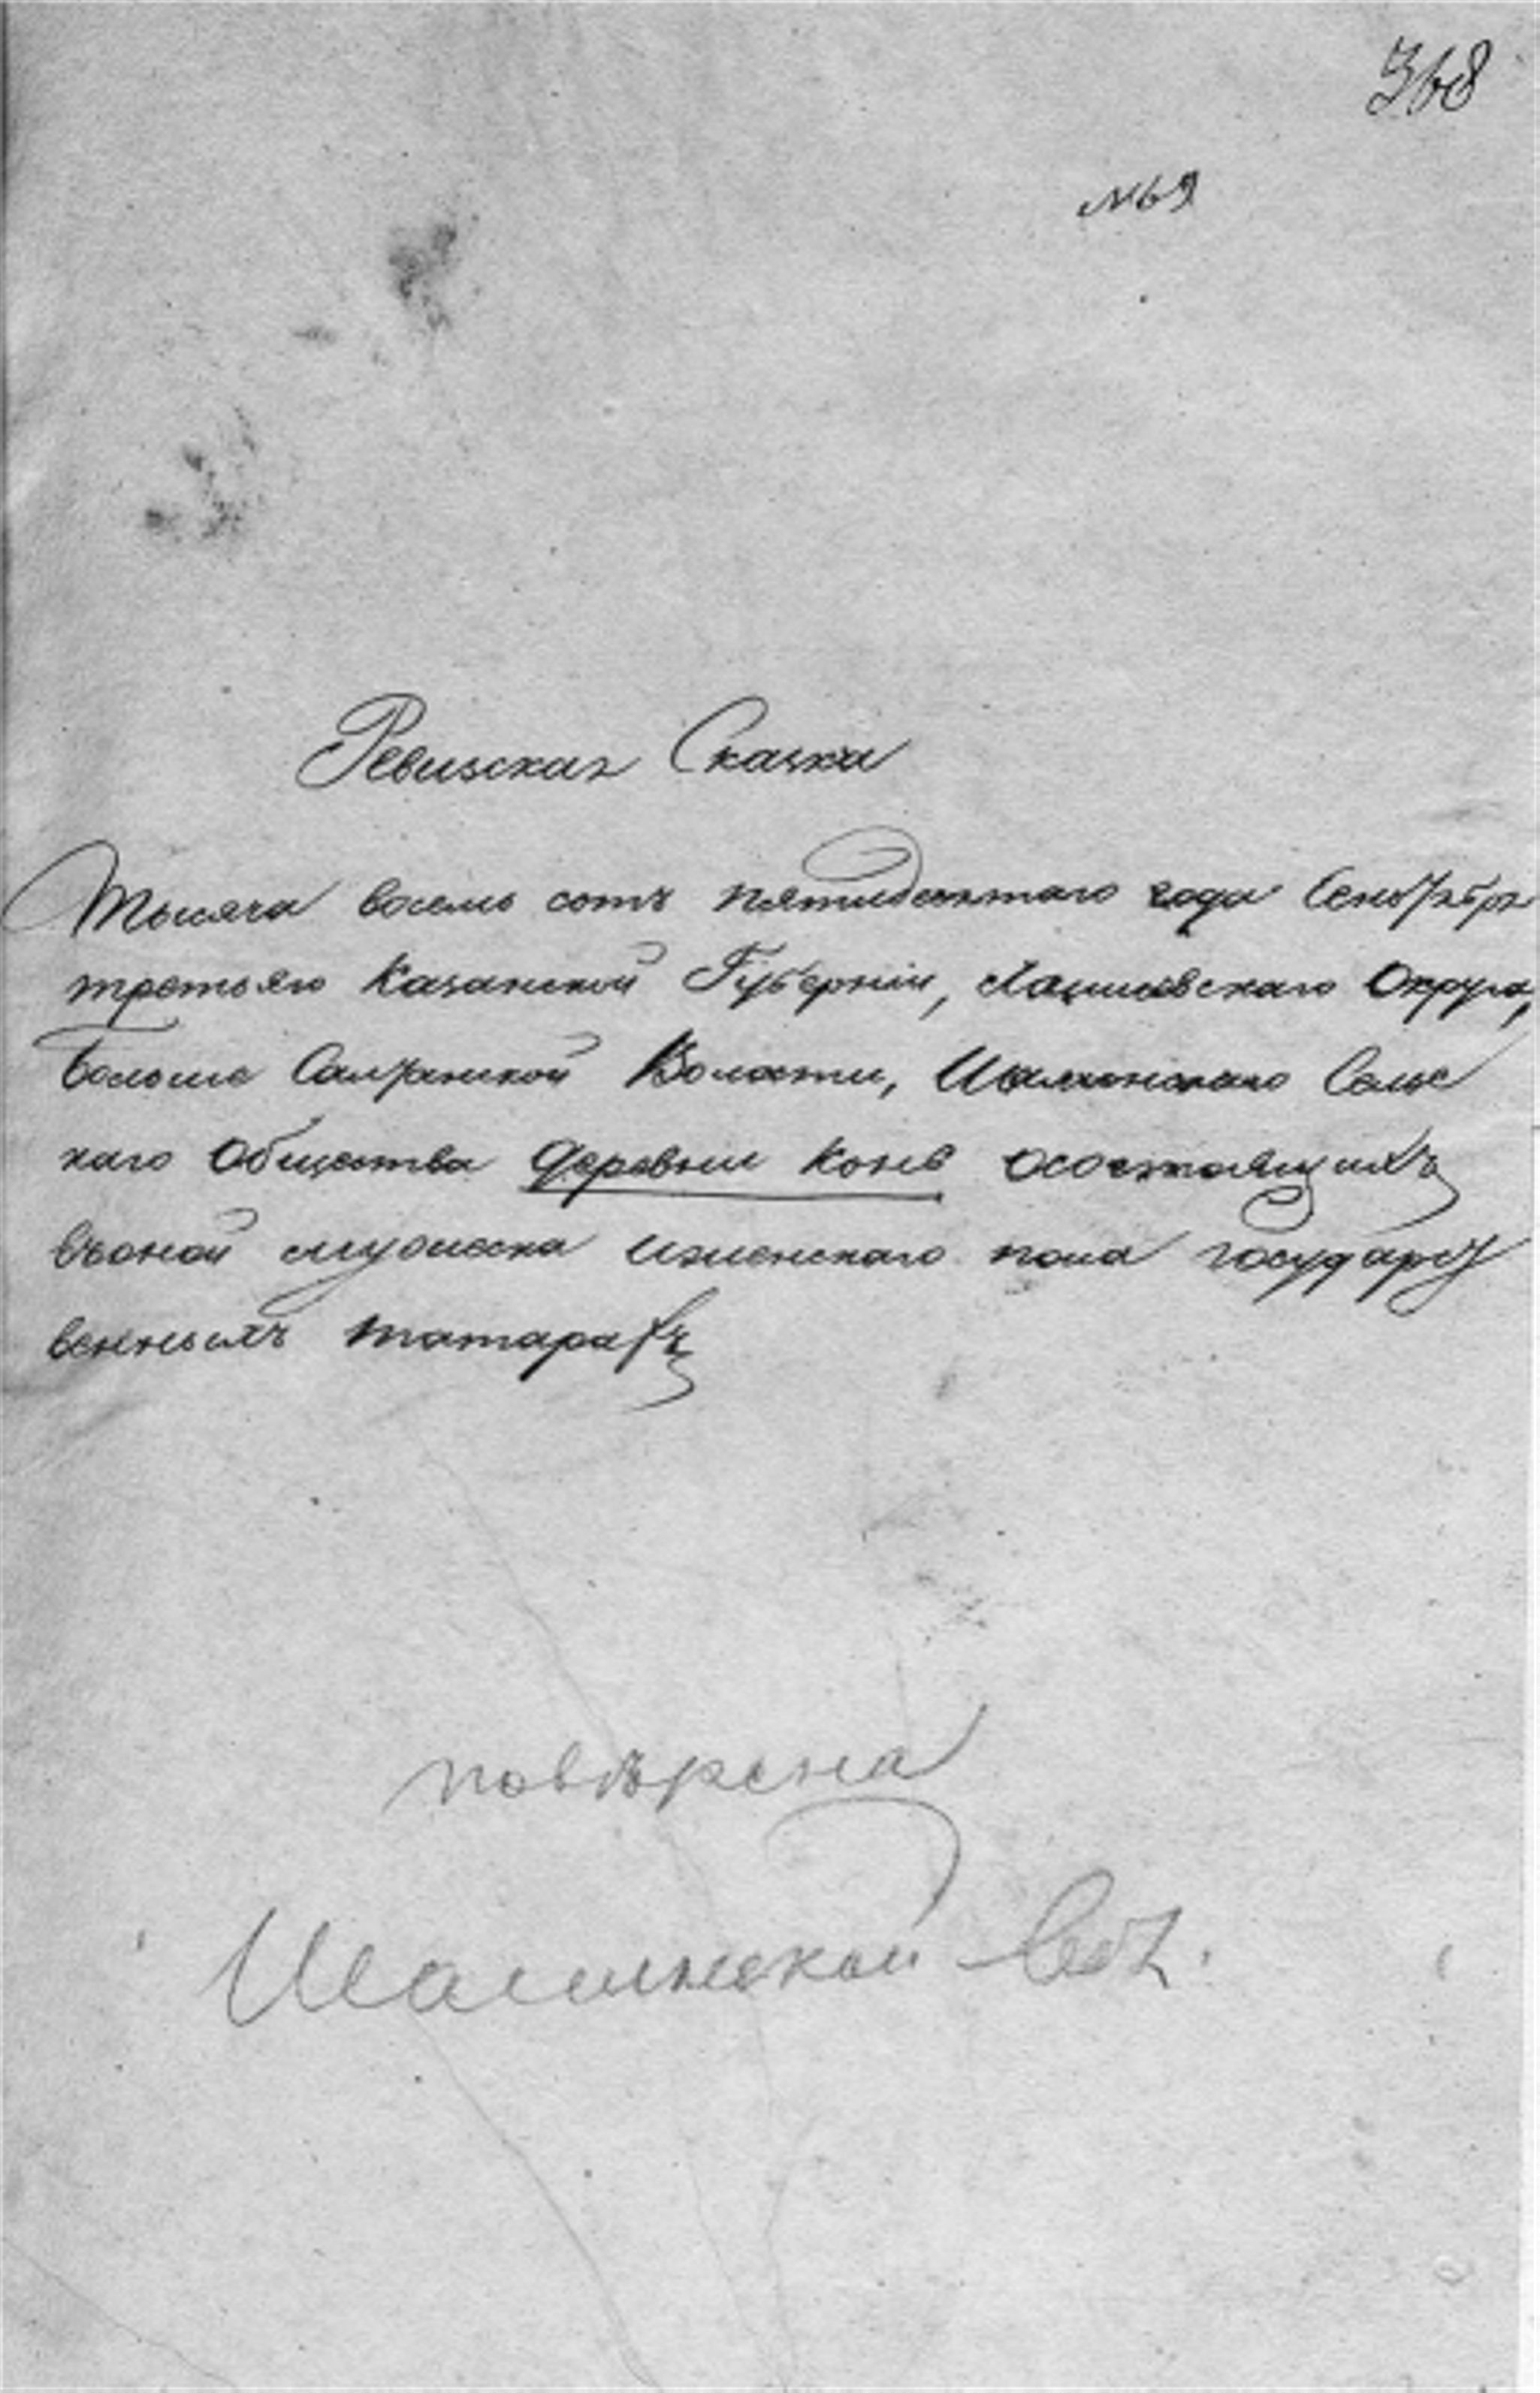 368
№69
Ревизская Сказка
Тысяча восемь сотъ пятидесятаго года Сентября
третьяго Казанской Губерніи, Лаишевскаго Округа,
Больше Салтанской Волости, Шалинскаго Сельс
каго Общества деревни Конь осостоящихъ
въоной мужеска иженскаго пола государст
венныхъ татарахъ
повѣрена
Шалинской